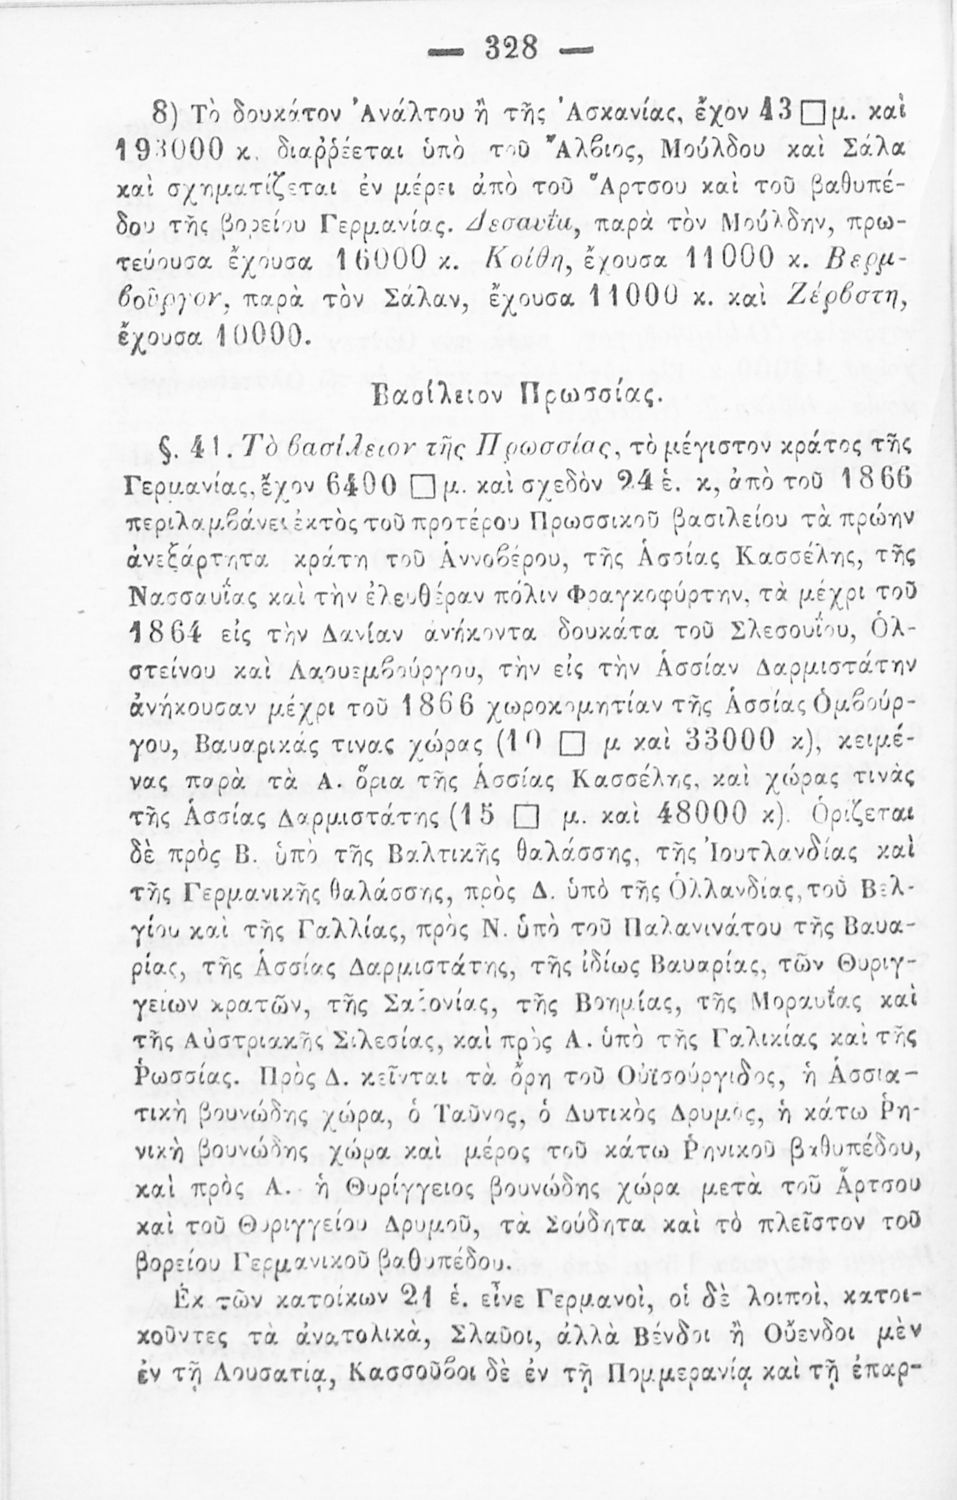 — 328 —
8) Τὸ δουκάτον Ἀνάλτου ἢ τῆς Ἀσκανίας, ἔχον 43 □ μ. καὶ
193000 κ. διαῤῥέεται ὑπὸ τοῦ Ἄλβιος, Μούλδου καὶ Σάλα
καὶ σχηματίζεται ἐν μέρει ἀπὸ τοῦ Ἅρτσου καὶ τοῦ βαθυπέ-
δου τῆς βορείου Γερμανίας. Δεσαυΐα, παρὰ τὸν Μούλδην, πρω-
τεύουσα ἔχουσα 16000 κ. Κοίθη, ἔχουσα 11000 κ. Βερμ-
βοῦργον, παρὰ τὸν Σάλαν, ἔχουσα 11000 κ. καὶ Ζέρβστη,
ἔχουσα 10000.
Βασίλειον Πρωσσίας.
§. 41. Τὸ βασίλειον τῆς Πρωσσίας, τὸ μέγιστον κράτος τῆς
Γερμανίας, ἔχον 6400 □ μ. καὶ σχεδὸν 24 ἑ. κ, ἀπὸ τοῦ 1866
περιλαμβάνει ἐκτὸς τοῦ προτέρου Πρωσσικοῦ βασιλείου τὰ πρώην
ἀνεξάρτητα κράτη τοῦ Ἀννοβέρου, τῆς Ἁσσίας Κασσέλης, τῆς
Νασσαυΐας καὶ τὴν ἐλευθέραν πόλιν Φραγκοφύρτην, τὰ μέχρι τοῦ
1864 εἰς τὴν Δανίαν ἀνήκοντα δουκάτα τοῦ Σλεσουΐου, Ὁλ-
στείνου καὶ Λαουεμβούργου, τὴν εἰς τὴν Ἁσσίαν Δαρμιστάτην
ἀνήκουσαν μέχρι τοῦ 1866 χωροκομητίαν τῆς Ἁσσίας Ὁμβούρ-
γου, Βαυαρικάς τινας χώρας (10 □ μ καὶ 33000 κ), κειμέ-
νας παρὰ τὰ Α. ὅρια τῆς Ἁσσίας Κασσέλης, καὶ χώρας τινὰς
τῆς Ἁσσίας Δαρμιστάτης (15 □ μ. καὶ 48000 κ). Ὁρίζεται
δὲ πρὸς Β. ὑπὸ τῆς Βαλτικῆς θαλάσσης, τῆς Ἰουτλανδίας καὶ
τῆς Γερμανικῆς θαλάσσης, πρὸς Δ. ὑπὸ τῆς Ὁλλανδίας, τοῦ Βελ-
γίου καὶ τῆς Γαλλίας, πρὸς Ν. ὑπὸ τοῦ Παλανινάτου τῆς Βαυα-
ρίας, τῆς Ἁσσίας Δαρμιστάτης, τῆς ἰδίως Βαυαρίας, τῶν Θυριγ-
γείων κρατῶν, τῆς Σαξονίας, τῆς Βοημίας, τῆς Μοραυΐας καὶ
τῆς Αὐστριακῆς Σιλεσίας, καὶ πρὸς Α. ὑπὸ τῆς Γαλικίας καὶ τῆς
Ῥωσσίας. Πρὸς Δ. κεῖνται τὰ ὄρη τοῦ Οὐϊσούργιδος, ἡ Ἁσσια-
τικὴ βουνώδης χώρα, ὁ Ταῦνος, ὁ Δυτικὸς Δρυμὸς, ἡ κάτω Ῥη-
νικὴ βουνώδης χώρα καὶ μέρος τοῦ κάτω Ῥηνικοῦ βαθυπέδου,
καὶ πρὸς Α. ἡ Θυρίγγειος βουνώδης χώρα μετὰ τοῦ Ἅρτσου
καὶ τοῦ Θυριγγείου Δρυμοῦ, τὰ Σούδητα καὶ τὸ πλεῖστον τοῦ
βορείου Γερμανικοῦ βαθυπέδου.
Ἐκ τῶν κατοίκων 21 ἑ. εἶνε Γερμανοὶ, οἱ δὲ λοιποὶ, κατοι-
κοῦντες τὰ ἀνατολικὰ, Σλαῦοι, ἀλλὰ Βένδοι ἢ Οὔενδοι μὲν
ἐν τῇ Λουσατίᾳ, Κασσοῦβοι δὲ ἐν τῇ Πομμερανίᾳ καὶ τῇ ἐπαρ-